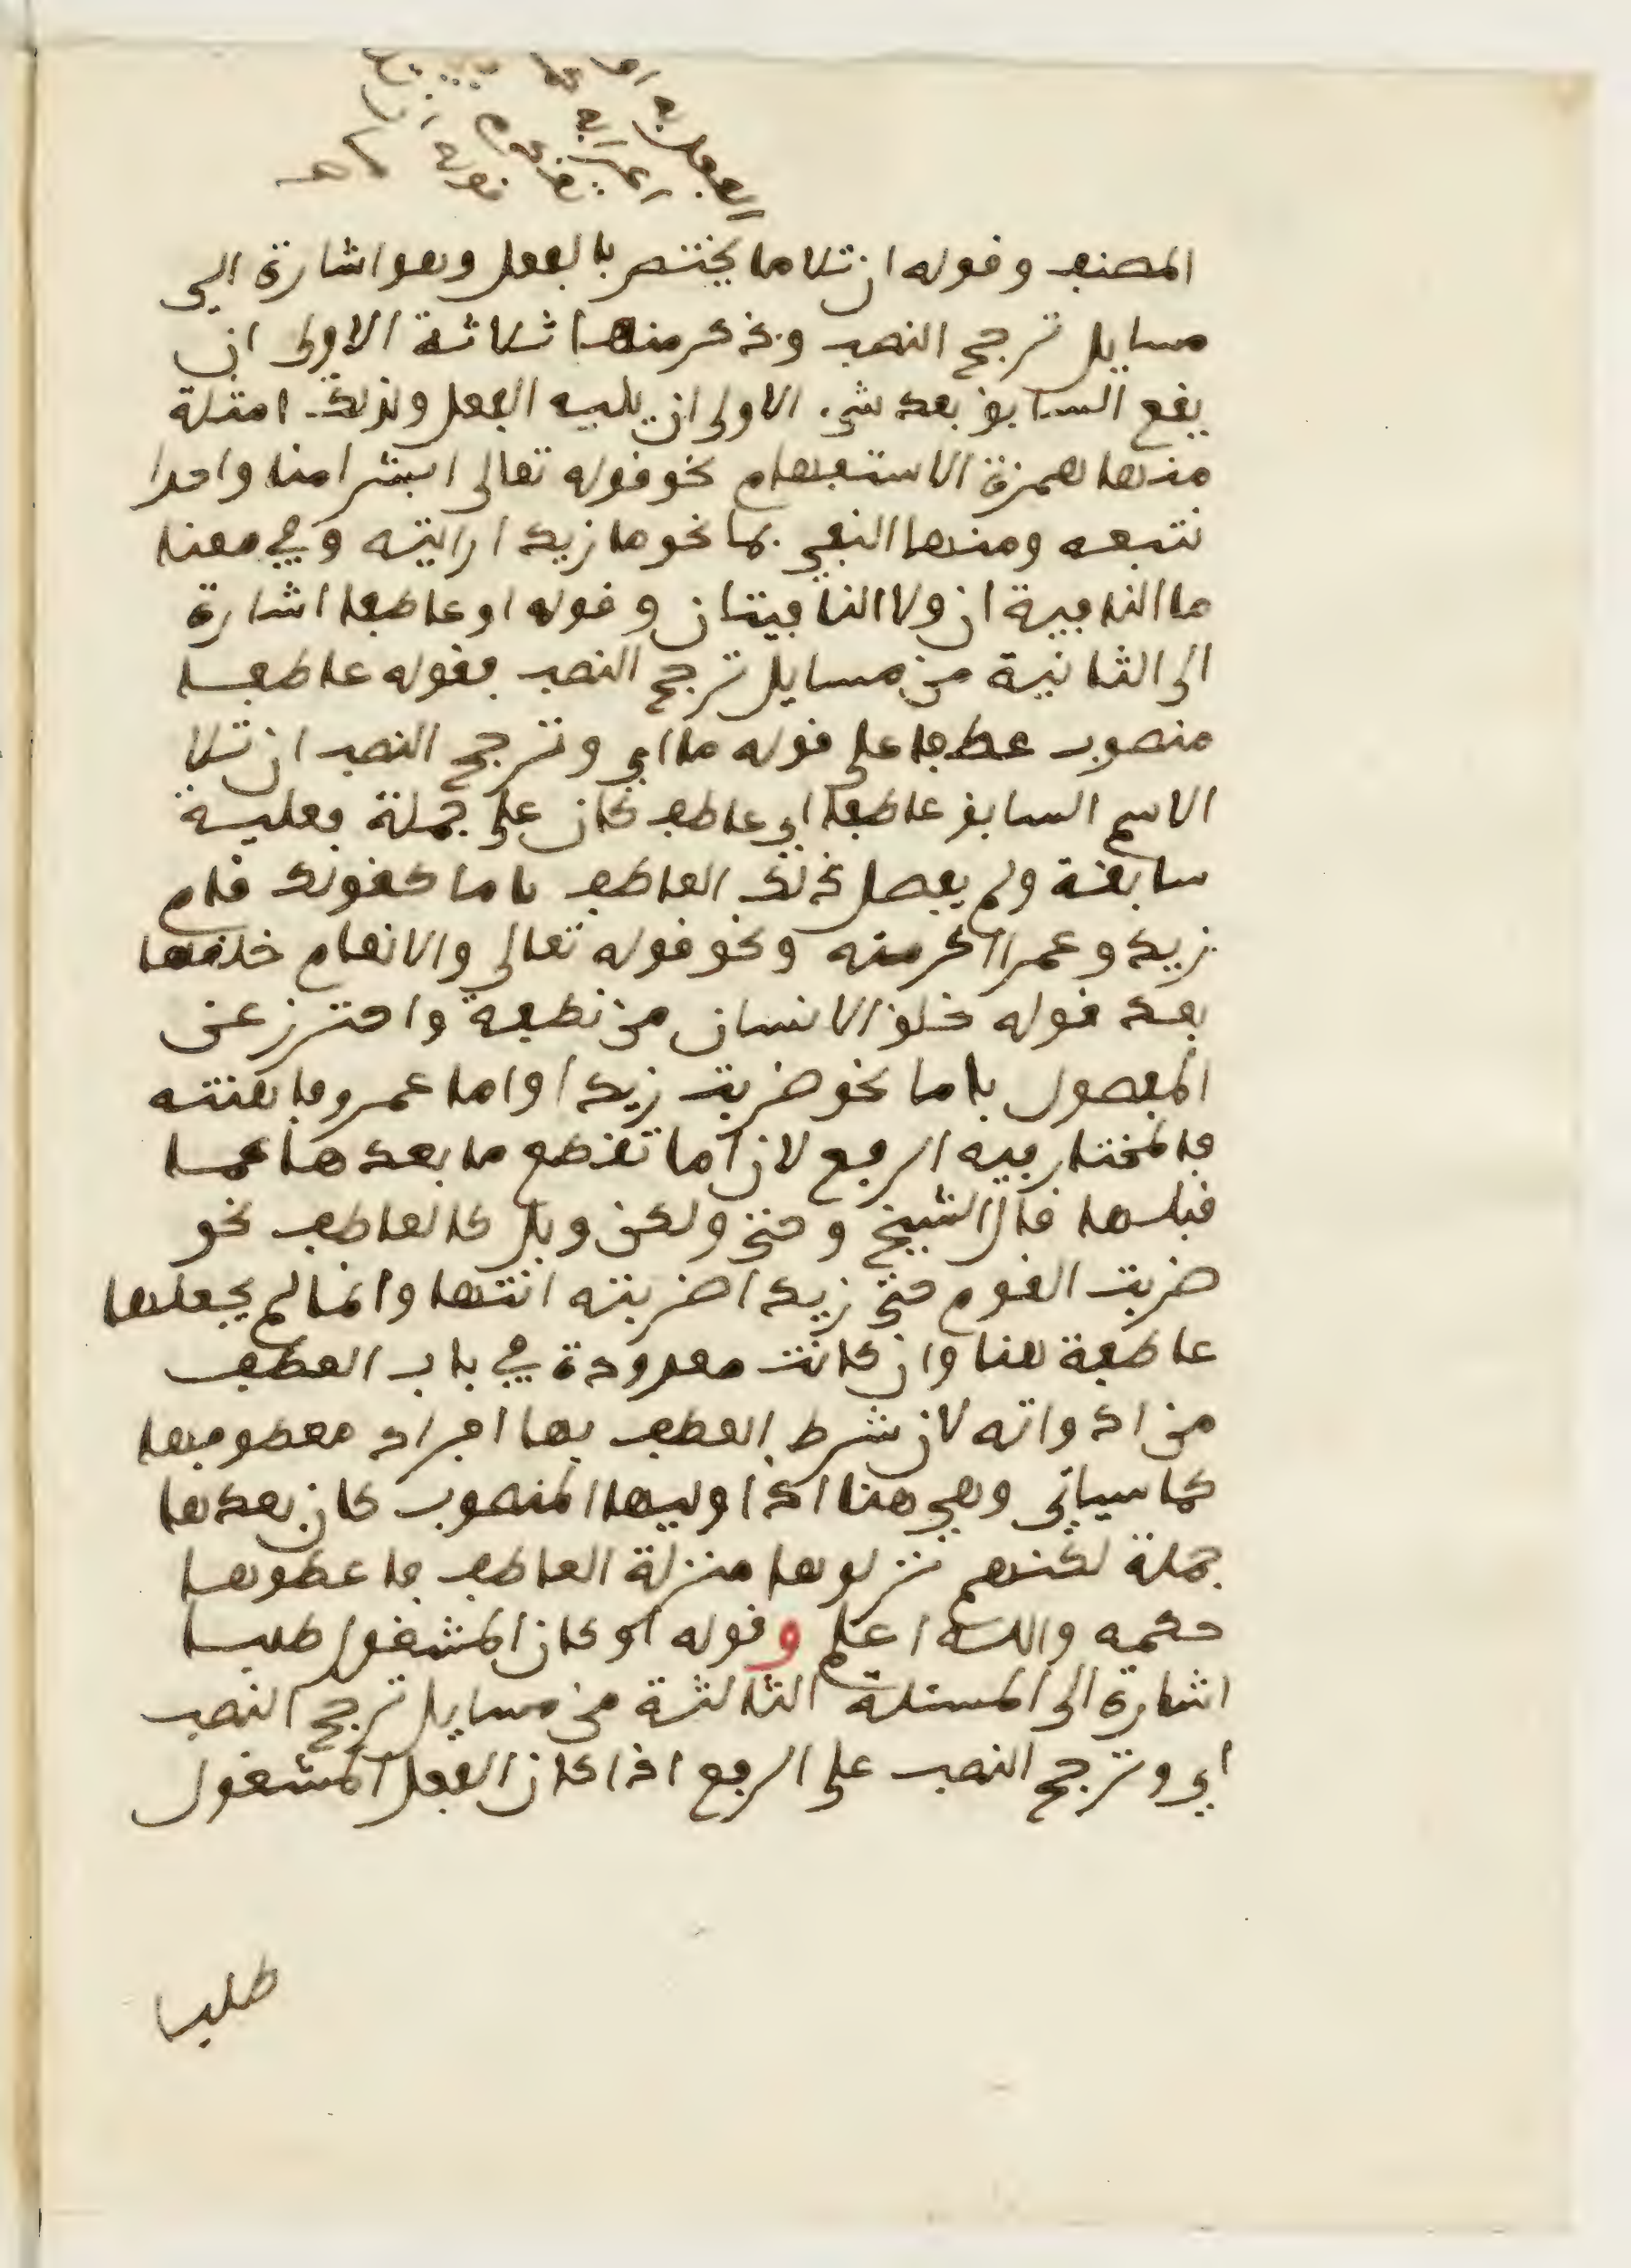 المصنف وقوله ان تلا ما يختص بالفعل وهو اشارة الى
مسايل ترجح النصب وذكر منها ثلاثة الاولى ان
يقع السابق بعد شيء الاولى ان يليه الفعل ولذلك امثلة
منها همزة الاستفهام نحو قوله تعالى ابشرا منا واحدا
نتبعه ومنها النفي بما نحو ما زيدا رايته وفي معنا
ما النافية ان ولا النافيتان وقوله او عاطفا اشارة
الى الثانية من مسايل ترجح النصب فقوله عاطفا
منصوب عطفا على قوله ما اي وترجح النصب ان تلا
الاسم السابق عاطفا اي عاطف كان على جملة فعلية
سابقة ولم يفصل ذلك العاطف باما كقولك قام
زيد وعمرا اكرمته ونحو قوله تعالى والانعام خلقها
بعد قوله خلق الانسان من نطفة واحترز عن
المفصول باما نحو ضربت زيدا واما عمرو فاهنته
فالمختار فيه الرفع لان اما تقطع ما بعدها عما
قبلها قال الشيخ وحتى ولكن وبل كالعاطف نحو
ضربت القوم حتى زيدا ضربته انتها وانما لم يجعلها
عاطفة هنا وان كانت معدودة في باب العطف
من ادواته لان شرط العطف بها افراد معطوفها
كما سياتي وهي هنا اذا وليها المنصوب كان بعدها
جملة لكنهم نزلوها منزلة العاطف فاعطوها
حكمه والله اعلم وقوله او كان المشغول طلبا
اشارة الى المسئلة الثالثة من مسايل ترجح النصب
اي وترجح النصب على الرفع اذا كان الفعل المشغول
طلبا